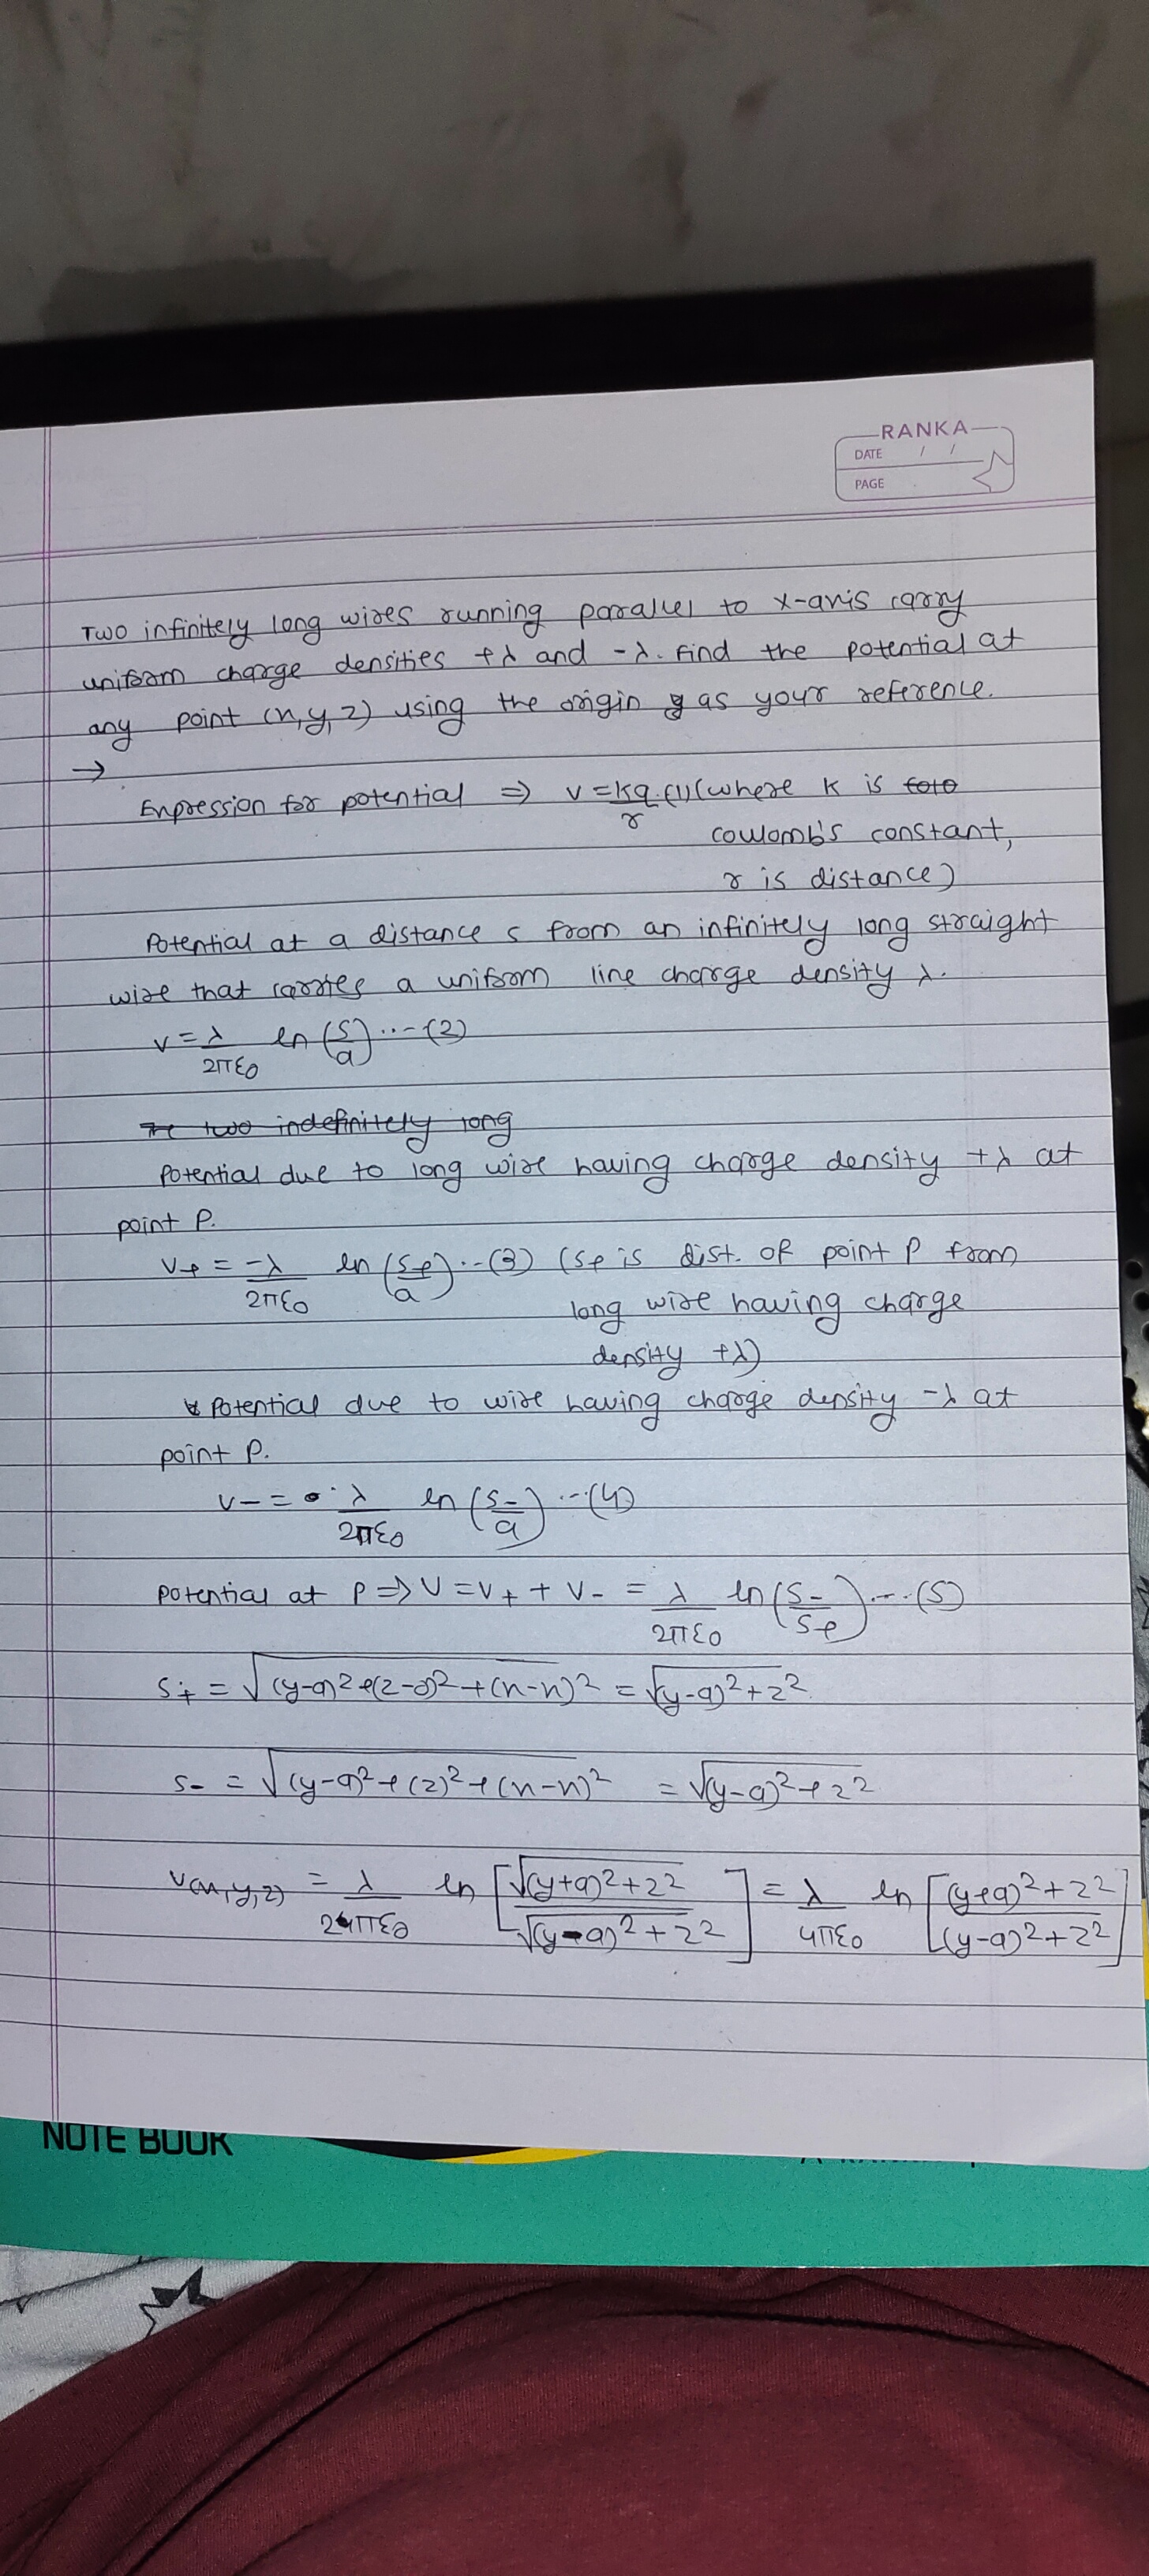 RANKA
DATE / /
PAGE
Two infinitely long wires running parallel to x-axis carry
uniform charge densities +λ and -λ. Find the potential at
any point (x,y,z) using the origin as your reference.
→
Expression for potential ⇒ V = kq/r .(1) (where K is
coulomb's constant,
r is distance)
Potential at a distance s from an infinitely long straight
wire that carries a uniform line charge density λ.
V = λ/2πε0 ln (s/a) ...(2)
two indefinitely long
Potential due to long wire having charge density +λ at
point P.
V+ = -λ/2πε0 ln (s+/a) ..(3) (s+ is dist. of point P from
long wire having charge
density +λ)
Potential due to wire having charge density -λ at
point P.
V- = λ/2πε0 ln (s-/a) ...(4)
potential at P ⇒ V = V+ + V- = λ/2πε0 ln (s-/s+) ...(5)
s+ = √(y-a)²+(z-0)²+(x-x)² = √(y-a)²+z²
s- = √(y-a)²+(z)²+(x-x)² = √(y-a)²+z²
V(x,y,z) = λ/2πε0 ln [√(y+a)²+z²/√(y-a)²+z²] = λ/4πε0 ln [(y+a)²+z²/(y-a)²+z²]
NOTE BOOK